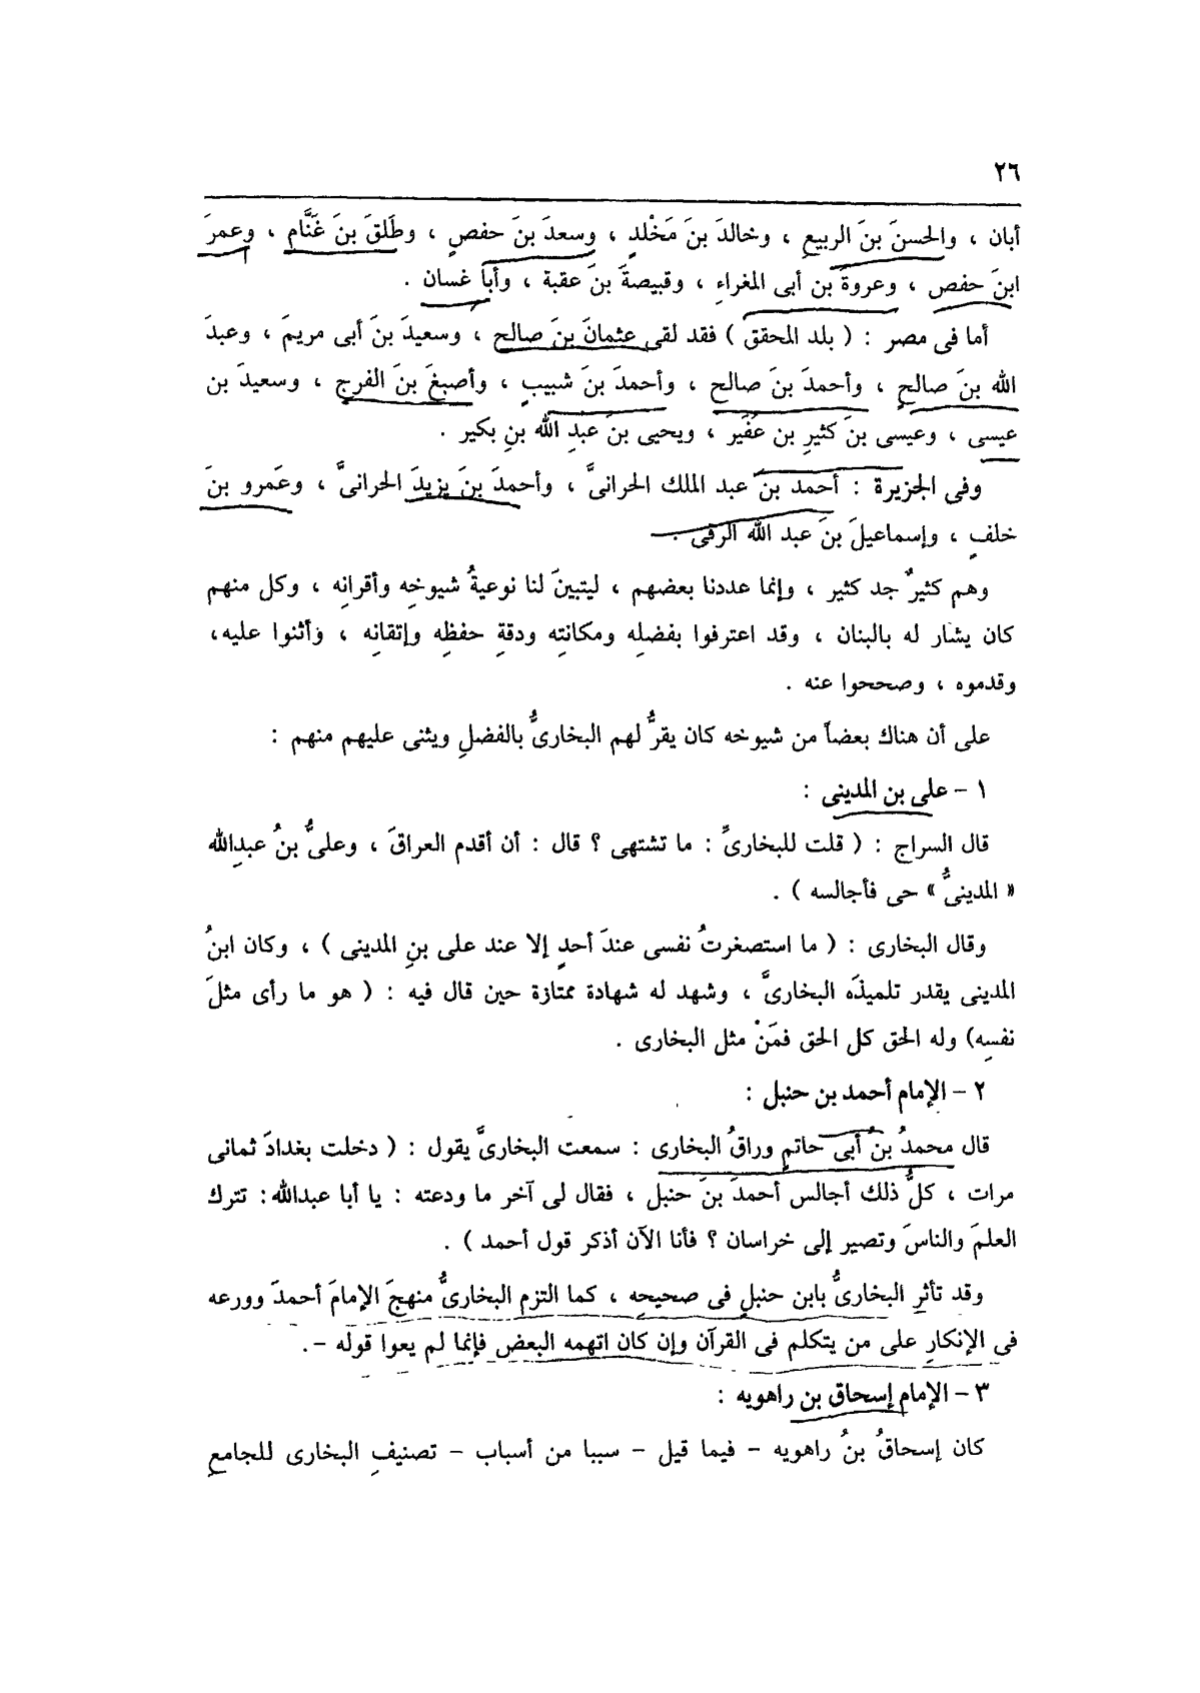 ٢٦
أبان ، والحسنَ بنَ الربيعِ ، وخالدَ بنَ مَخْلدٍ ، وسعدَ بنَ حفصٍ ، وطَلقَ بنَ غَنَّام ، وعمرَ
ابنَ حفص ، وعروةَ بن أبى المغراءِ ، وقبيصةَ بنَ عقبة ، وأبا غسان .
أما فى مصر : ( بلد المحقق ) فقد لقى عثمانَ بنَ صالح ، وسعيدَ بنَ أبى مريمَ ، وعبدَ
الله بنَ صالحٍ ، وأحمدَ بنَ صالح ، وأحمدَ بنَ شبيبٍ ، وأصبغَ بنَ الفرج ، وسعيدَ بن
عيسى ، وعيسى بنَ كثيرِ بن عُفَير ، ويحيى بنَ عبدِ الله بنِ بكير .
وفى الجزيرة : أحمد بنَ عبد الملك الحرانىَّ ، وأحمدَ بنَ يزيدَ الحرانىَّ ، وعَمرو بنَ
خلفٍ ، وإسماعيلَ بنَ عبد الله الرقى .
وهم كثيرٌ جد كثير ، وإنما عددنا بعضهم ، ليتبينَ لنا نوعيةُ شيوخِه وأقرانِه ، وكل منهم
كان يشار له بالبنان ، وقد اعترفوا بفضلِه ومكانتِه ودقةِ حفظِه وإتقانِه ، وأثنوا عليه،
وقدموه ، وصححوا عنه .
على أن هناك بعضاً من شيوخه كان يقرُّ لهم البخارىُّ بالفضلِ ويثنى عليهم منهم :
١ - على بن المدينى :
قال السراج : ( قلت للبخارىِّ : ما تشتهى ؟ قال : أن أقدم العراقَ ، وعلىُّ بنُ عبدِالله
« المدينىُّ » حى فأجالسه ) .
وقال البخارى : ( ما استصغرتُ نفسى عندَ أحدٍ إلا عند على بنِ المدينى ) ، وكان ابنُ
المدينى يقدر تلميذَه البخارىَّ ، وشهد له شهادة ممتازة حين قال فيه : ( هو ما رأى مثلَ
نفسِه) وله الحق كل الحق فمَنْ مثل البخارى .
٢ - الإمام أحمد بن حنبل :
قال محمدُ بنُ أبى حاتمٍ وراقُ البخارى : سمعت البخارىَّ يقول : ( دخلت بغدادَ ثمانى
مرات ، كلُّ ذلك أجالس أحمدَ بنَ حنبل ، فقال لى آخر ما ودعته : يا أبا عبدالله: تترك
العلمَ والناسَ وتصير إلى خراسان ؟ فأنا الآن أذكر قول أحمد ) .
وقد تأثر البخارىُّ بابن حنبلٍ فى صحيحِه ، كما التزم البخارىُّ منهجَ الإمامَ أحمدَ وورعه
فى الإنكارِ على من يتكلم فى القرآن وإن كان اتهمه البعض فإنما لم يعوا قوله -.
٣ - الإمام إسحاق بن راهويه :
كان إسحاقُ بنُ راهويه - فيما قيل - سببا من أسباب - تصنيفِ البخارى للجامعِ